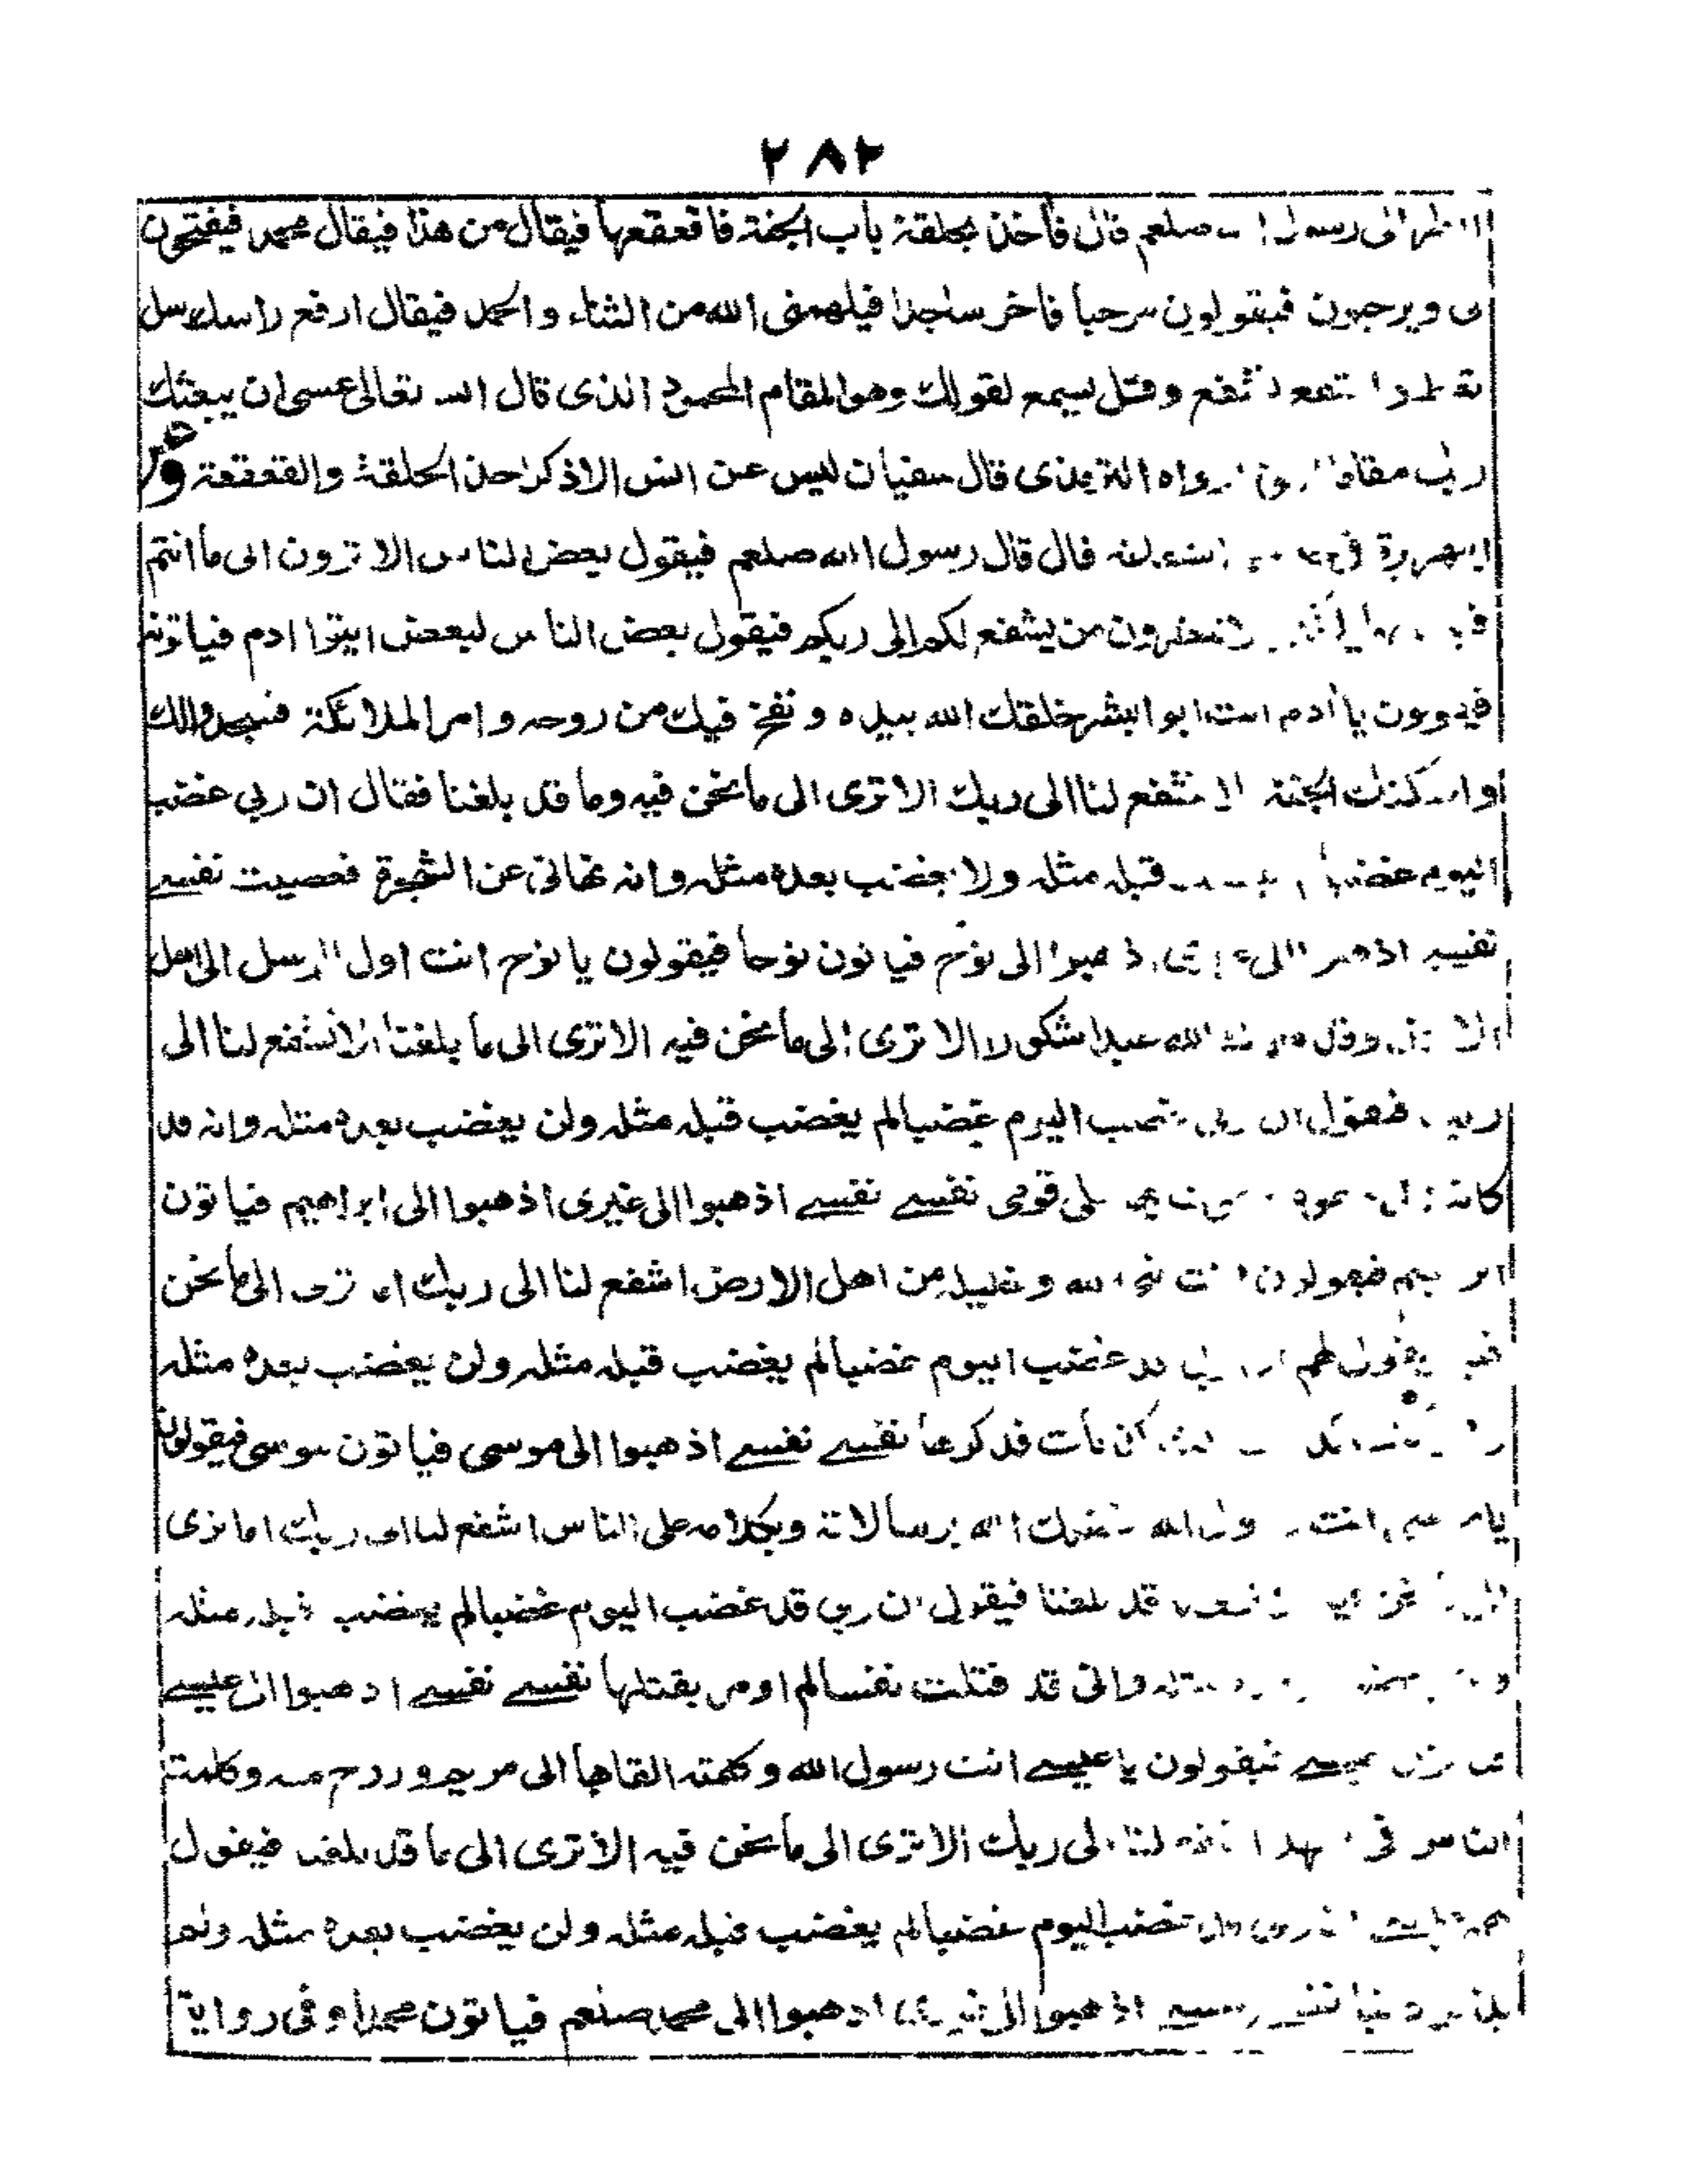 ٢٨٢
انظر الى رسول الله صلعم قال فأخذ بحلقة باب الجنة فاقعقعها فيقال من هذا فيقال محمد فيفتحون
لى ويرحبون فيقولون مرحبا فاخر ساجدا فيلهمنى الله من الثناء والحمد فيقال ارفع راسك سل
تعط واشفع تشفع وقل يسمع لقولك وهو المقام المحمود الذى قال الله تعالى عسى ان يبعثك
ربك مقاما رواه الترمذى قال سفيان ليس عن انس الا ذكر احذ الحلقة والقعقعة و
ابيهريرة قال قال رسول الله صلعم فيقول بعض الناس الا ترون الى ما انتم
تنظرون من يشفع لكم الى ربكم فيقول بعض الناس لبعض ايتوا ادم فياتونه
يا ادم انت ابو البشر خلقك الله بيده ونفخ فيك من روحه وامر الملائكة فسجدوا لك
واسكنك الجنة الا تشفع لنا الى ربك الا ترى الى ما نحن فيه وما قد بلغنا فقال ان ربي غضب
اليوم غضبا قبله مثله ولا يغضب بعده مثله وانه نهانى عن الشجرة فعصيت نفسے
نفسے اذهبوا الى اذهبوا الى نوح فياتون نوحا فيقولون يا نوح انت اول الرسل الى اهل
الارض وقد الله عبدا شكورا الا ترى الى ما نحن فيه الا ترى الى ما بلغنا الا تشفع لنا الى
ربك فيقول ان ربى غضب اليوم غضبا لم يغضب قبله مثله ولن يغضب بعده مثله وانه قد
كانت على قومى نفسے نفسے اذهبوا الى غيرى اذهبوا الى ابراهيم فياتون
ابراهيم فيقولون انت نبى الله وخليله من اهل الارض اشفع لنا الى ربك اما ترى الى ما نحن
فيه فيقول لهم ان ربى قد غضب اليوم غضبا لم يغضب قبله مثله ولن يغضب بعده مثله
فذكرها نفسے نفسے اذهبوا الى موسى فياتون موسى فيقولون
يا موسى انت رسول الله فضلك الله برسالاته وبكلامه على الناس اشفع لنا الى ربك اما ترى
نحن فيه قد بلغنا فيقول ان ربي قد غضب اليوم غضبا لم يغضب قبله مثله
مثله وانى قد قتلت نفسا لم اومر بقتلها نفسے نفسے اذهبوا الى عيسے
عيسے فيقولون يا عيسے انت رسول الله وكلمته القاها الى مريم وروح منه وكلمت
الناس فى المهد لنا الى ربك الا ترى الى ما نحن فيه الا ترى الى ما قد بلغنا فيقول
غضب اليوم غضبا لم يغضب قبله مثله ولن يغضب بعده مثله ولم
يذكر ذنبا نفسے نفسے اذهبوا الى غيرى اذهبوا الى محمد صلعم فياتون محمدا وفى رواية